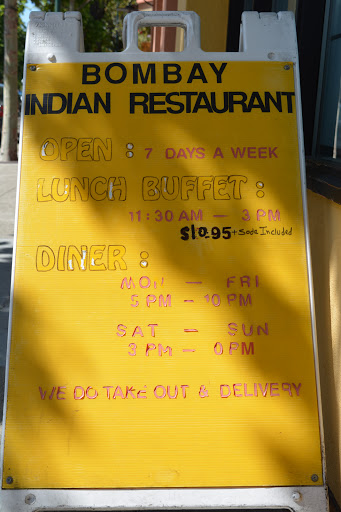 BOMBAY
INDIAN RESTAURANT
OPEN : 7 DAYS A WEEK
LUNCH BUFFET :
11:30 AM — 3 PM
$10.95 + Soda Included
DINER :
MON — FRI
5 PM — 10 PM
SAT — SUN
3 PM — 0 PM
WE DO TAKE OUT & DELIVERY